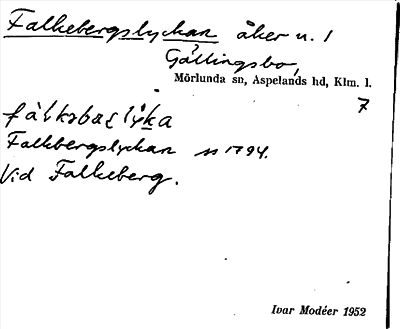 Falkebergslyckan åker u. 1
Gällingsbo,
Mörlunda sn, Aspelands hd, Klm. l.
7
Falkbergslyckan 1794.
Vid Falkeberg.
Ivar Modéer 1952